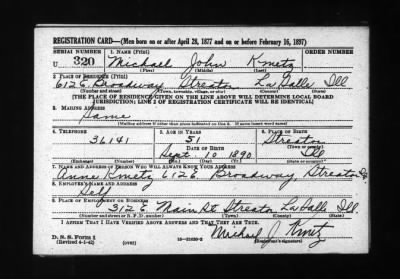 REGISTRATION CARD—(Men born on or after April 28, 1877 and on or before February 16, 1897)
SERIAL NUMBER 1. NAME (Print) ORDER NUMBER
U 320 Michael John Kmetz
(First) (Middle) (Last)
2. PLACE OF RESIDENCE (Print)
612 E Broadway Streator La Salle Ill
(Number and street) (Town, township, village, or city) (County) (State)
[THE PLACE OF RESIDENCE GIVEN ON THE LINE ABOVE WILL DETERMINE LOCAL BOARD
JURISDICTION; LINE 2 OF REGISTRATION CERTIFICATE WILL BE IDENTICAL]
3. MAILING ADDRESS
Same
[Mailing address if other than place indicated on line 2. If same insert word same]
4. TELEPHONE 5. AGE IN YEARS 6. PLACE OF BIRTH
36141 51 Streator
DATE OF BIRTH
Sept. 10 1890 Ill
(Exchange) (Number) (Mo.) (Day) (Yr.) (State or country)
7. NAME AND ADDRESS OF PERSON WHO WILL ALWAYS KNOW YOUR ADDRESS
Anne Kmetz 612 E Broadway Streator
8. EMPLOYER'S NAME AND ADDRESS
Self
9. PLACE OF EMPLOYMENT OR BUSINESS
312 E Main St Streator La Salle Ill.
(Number and street or R. F. D. number) (Town) (County) (State)
I AFFIRM THAT I HAVE VERIFIED ABOVE ANSWERS AND THAT THEY ARE TRUE.
Michael J. Kmetz
D. S. S. Form 1
(Revised 4-1-42) (over) 16-21630-2